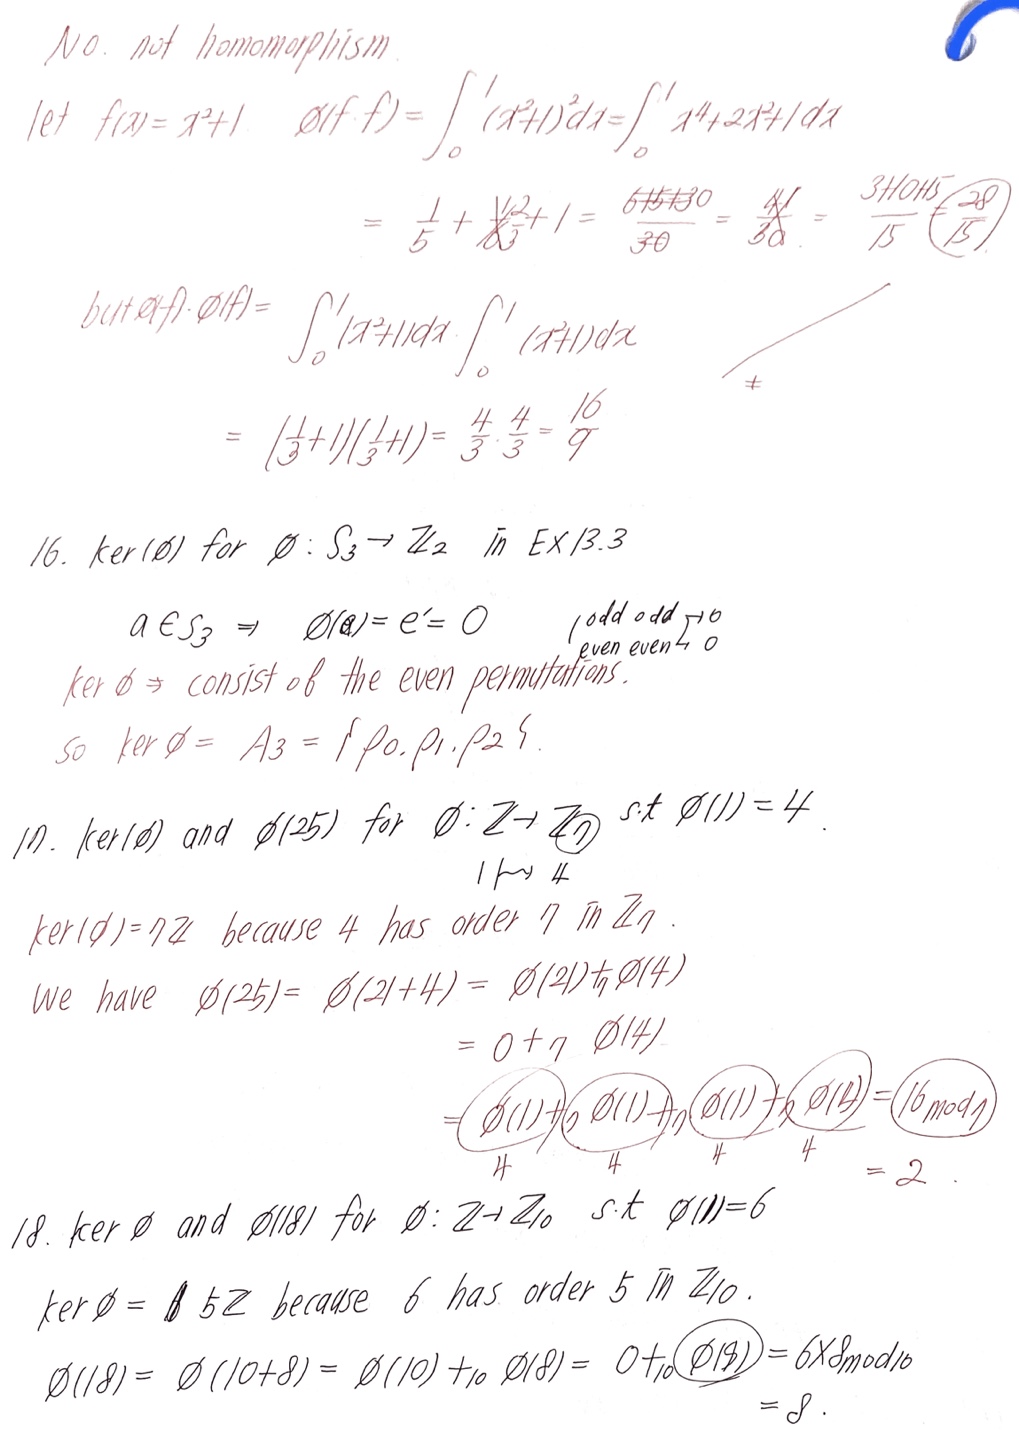 No. not homomorphism.
let f(x) = x²+1 ø(f·f) = ∫₀¹ (x²+1)²dx = ∫₀¹ x⁴+2x²+1 dx
= 1/5 + 2/3 + 1 = 6+5+30/30 = 41/30 = 3+10+15/15 = 28/15
but ø(f)·ø(f) = ∫₀¹ (x²+1)dx · ∫₀¹ (x²+1)dx
≠
= (1/3+1)(1/3+1) = 4/3 · 4/3 = 16/9
16. ker(ø) for ø : S₃ → ℤ₂ in EX 13.3
a ∈ S₃ ⇒ ø(a) = e' = 0 (odd odd → 0
even even → 0
ker ø ⇒ consist of the even permutations.
so ker ø = A₃ = {ρ₀, ρ₁, ρ₂}.
17. ker(ø) and ø(25) for ø : ℤ → ℤ₇ s.t ø(1) = 4.
1 ↦ 4
ker(ø) = 7ℤ because 4 has order 7 in ℤ₇.
We have ø(25) = ø(21+4) = ø(21) +₇ ø(4)
= 0 +₇ ø(4)
= ø(1) +₇ ø(1) +₇ ø(1) +₇ ø(1) = 16 mod 7
4 4 4 4 = 2.
18. ker ø and ø(18) for ø : ℤ → ℤ₁₀ s.t ø(1) = 6
ker ø = 5ℤ because 6 has order 5 in ℤ₁₀.
ø(18) = ø(10+8) = ø(10) +₁₀ ø(8) = 0 +₁₀ ø(8) = 6×8 mod 10
= 8.